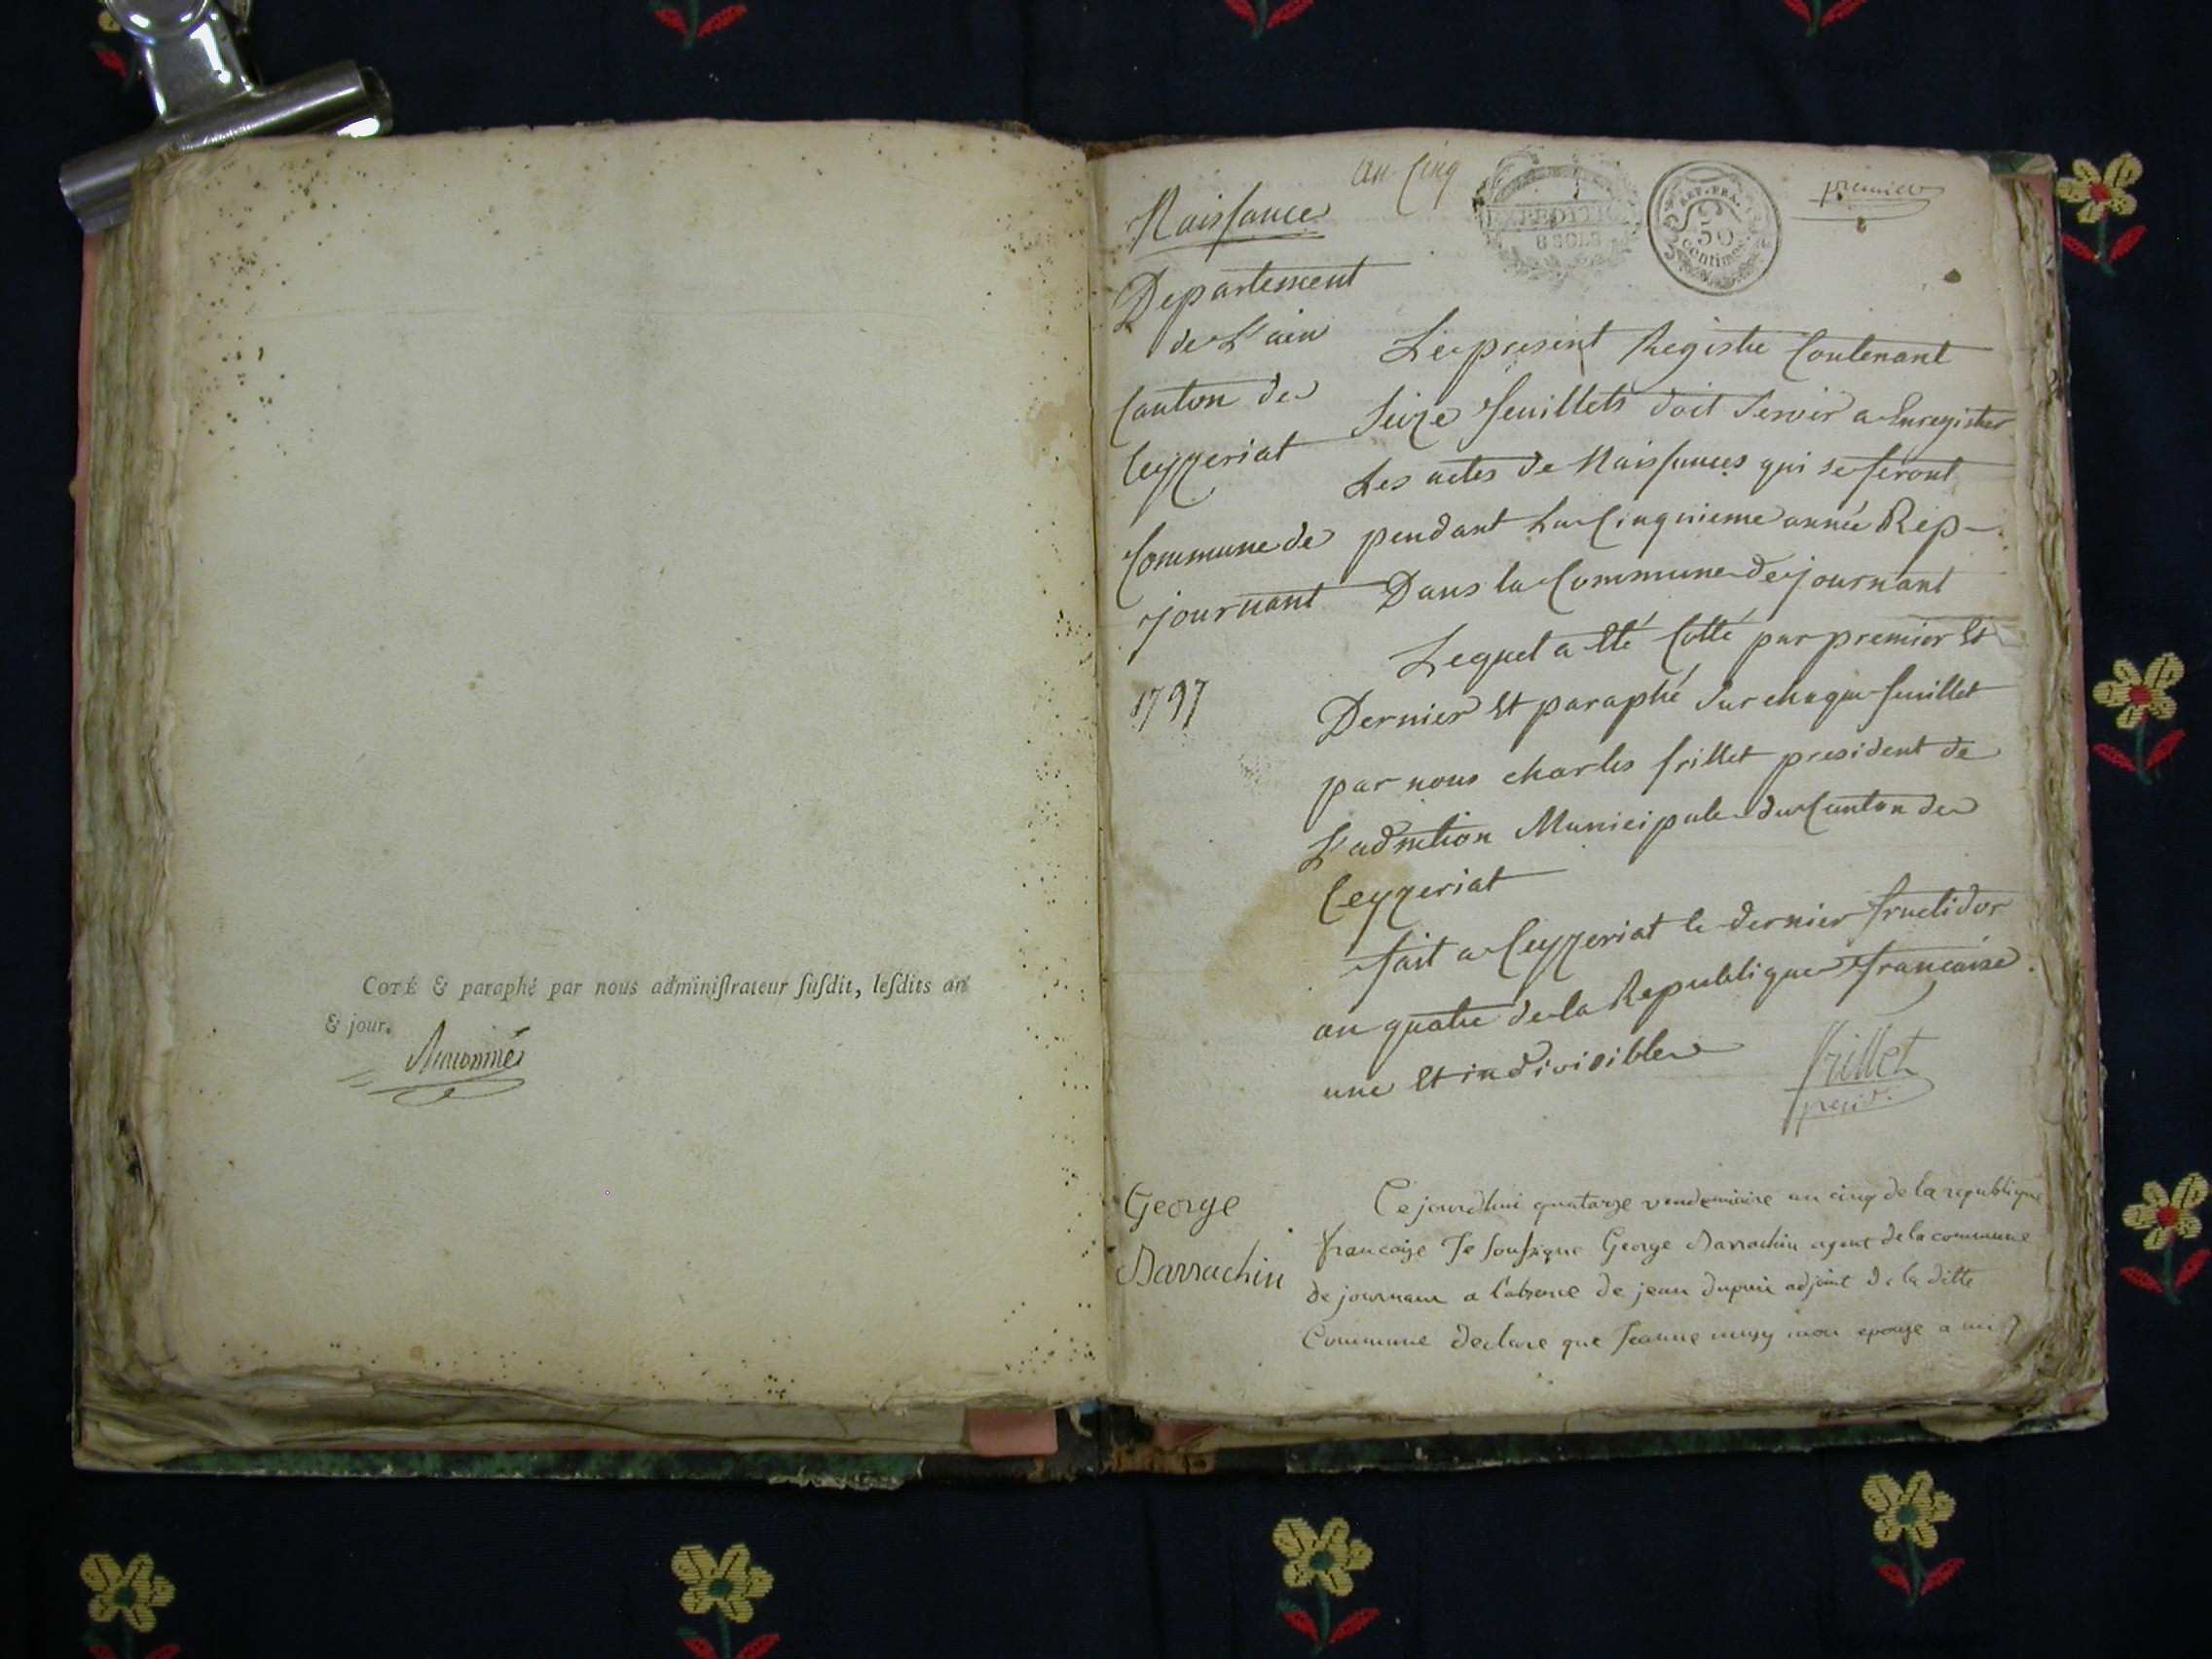 COTÉ & paraphé par nous adminiſtrateur ſuſdit, leſdits an
& jour.
an Cinq
EXPEDITION
6 SOLS
REP. FRA.
50
centimes
premier
Naissance
Departement
de L'ain
Canton de
Ceyzeriat
Commune de
journant
1797
Le present Registre Contenant
Seize feuillets doit Servir a Enregistrer
Les actes de Naissances qui se feront
pendant La Cinquieme année Rep-
Dans la Commune de journant
Lequel a Eté Cotté par premier Et
Dernier Et paraphé Sur chaque feuillet
par nous charles frillet president de
L'admtion Municipale du Canton de
Ceyzeriat
fait a Ceyzeriat le dernier fructidor
an quatre de la Republique francaise.
une Et indivisible
frillet
presid.
George
Darrachin
Ce jourdhui quatorze vendemiaire an cinq de la republique
francoize Je soussigne George Darrachin agent de la commune
de journant a l'absence de jean dupuis adjoint de la ditte
Commune declare que Jeanne mon epouze a mi